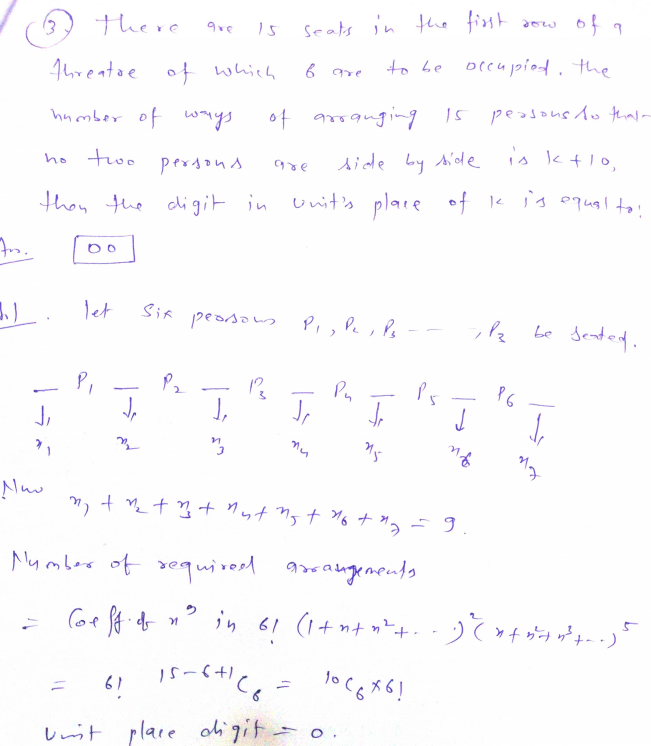 (3) There are 15 seats in the first row of a
threatre of which 6 are to be occupied. The
number of ways of arranging 15 persons so that
no two persons are side by side is k + 10,
then the digit in unit's place of k is equal to:
Ans. 00
Sol. let Six peorsons P₁, P₂, P₃ - - - , P₂ be seated.
_ P₁ _ P₂ _ P₃ _ P₄ _ P₅ _ P₆ _
↓ ↓ ↓ ↓ ↓ ↓ ↓
x₁ x₂ x₃ x₄ x₅ x₆ x₇
Now x₁ + x₂ + x₃ + x₄ + x₅ + x₆ + x₇ = 9.
Number of required arrangements
= Coeff. of x⁹ in 6! (1 + x + x² + . . .)² (x + x² + x³ + . . )⁵
= 6! ¹⁵⁻⁶⁺¹C₆ = ¹⁰C₆ × 6!
Unit place digit = 0.